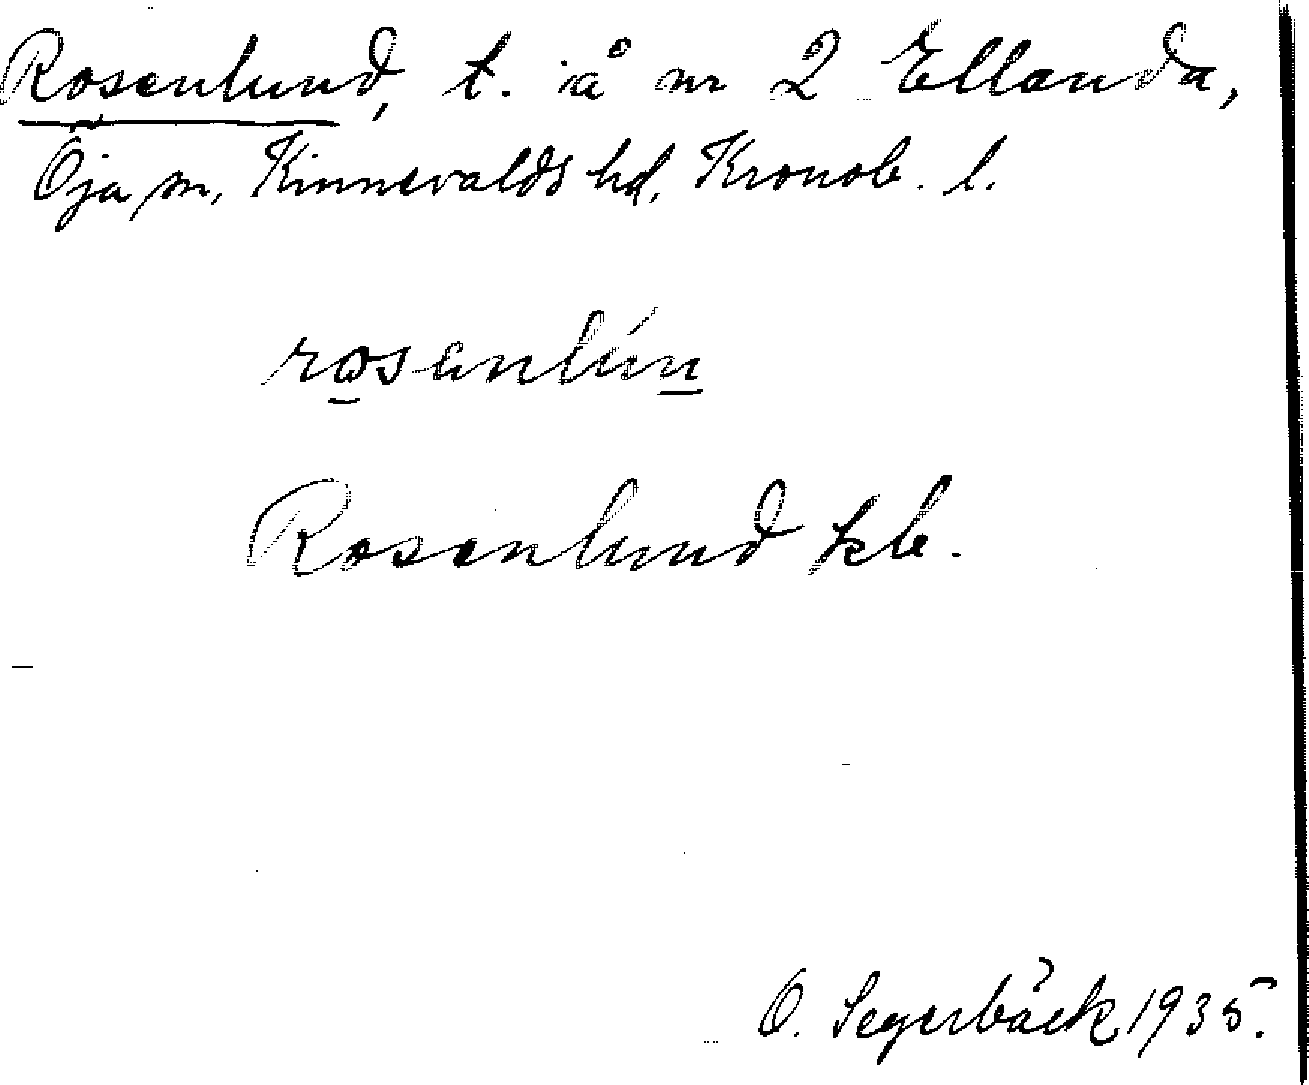 Rosenlund, t. å nr 2 Ellanda,
Öja sn, Kinnevalds hd, Kronob. l.
rosenlún
Rosenlund kb.
O. Segerbäck 1935.